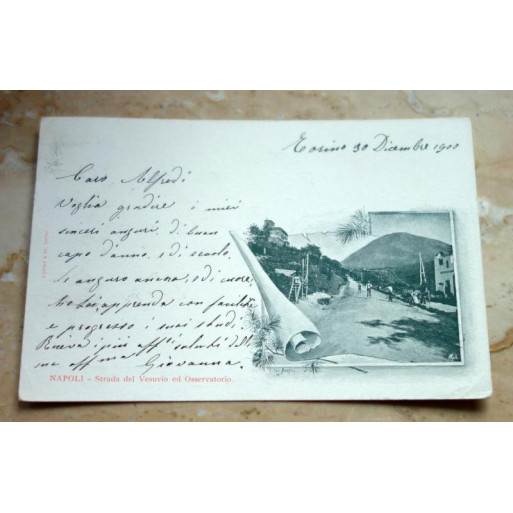 Torino 30 Dicembre 1900
Caro Alfredi
Voglia gradire i miei
sinceri auguri, di buon
capo d'anno, e di secolo.
Le auguro ancora, e di cuore,
che Lei apprenda con
e progresso i suoi studi.
Riceva i più aff.si saluti dalla
sua aff.ma Giovanna.
NAPOLI - Strada del Vesuvio ed Osservatorio.